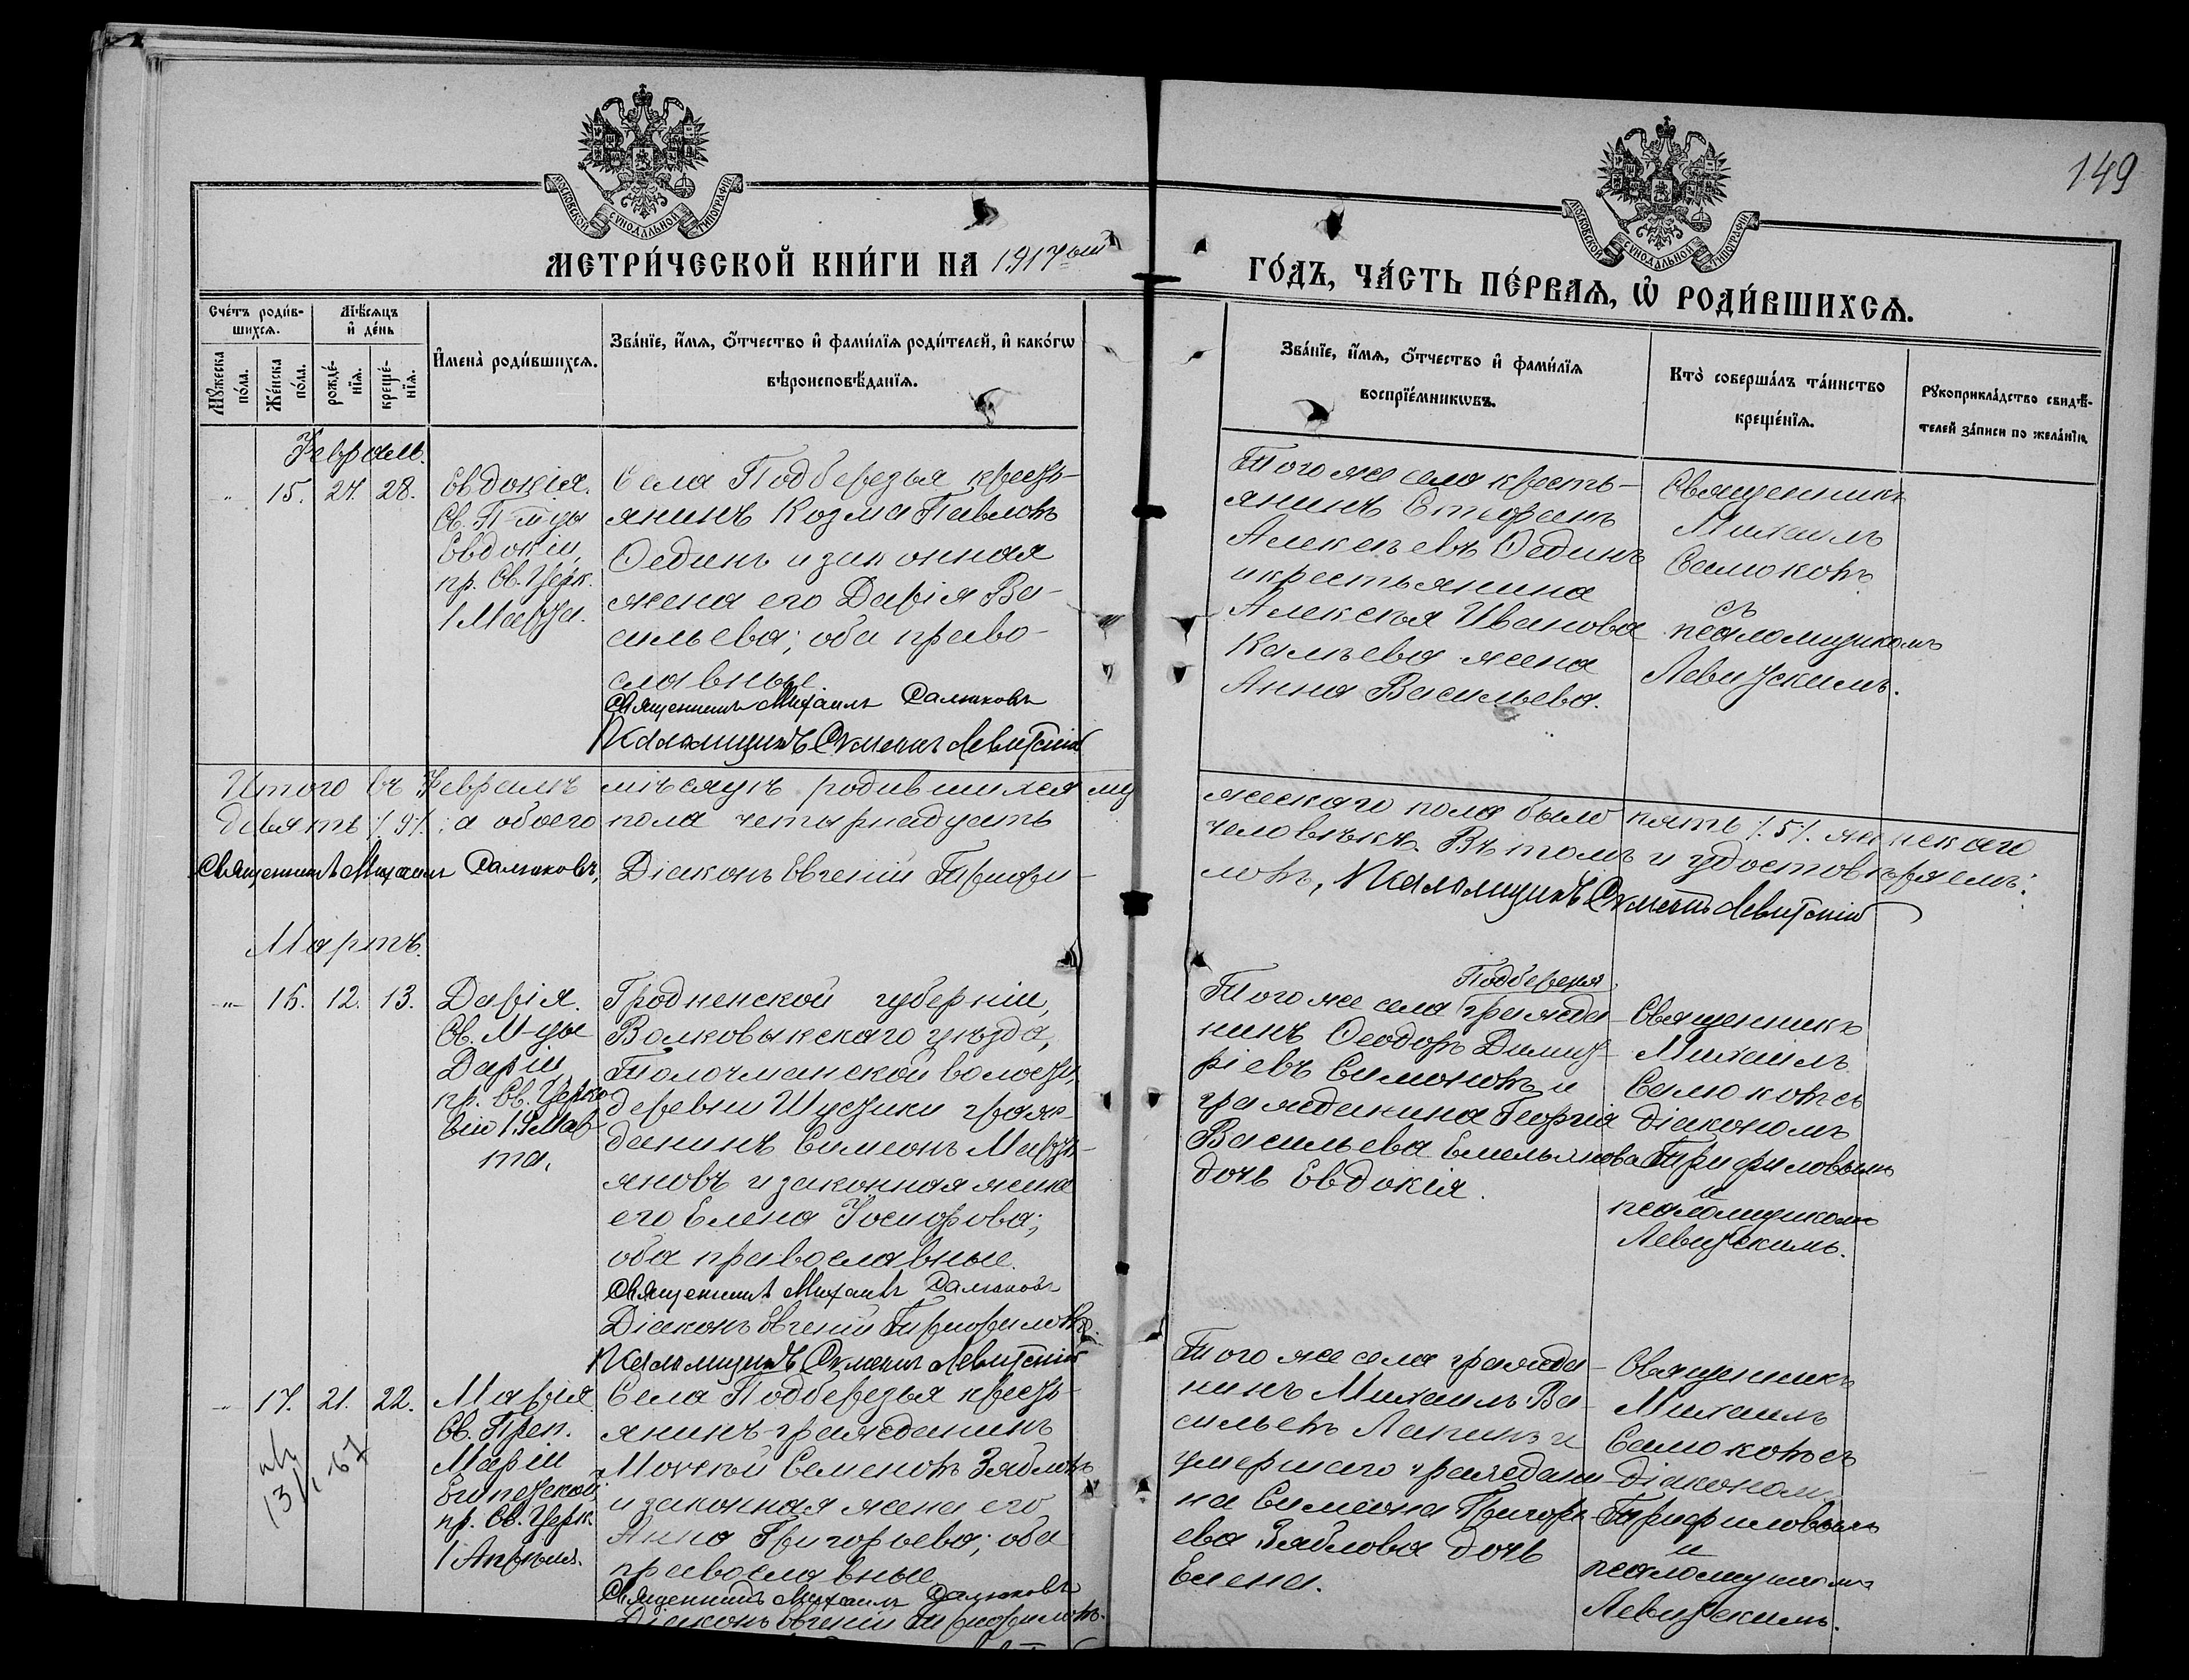 149
МОСКОВСКОЙ СѴНОДАЛЬНОЙ ТИПОГРАФІИ
МОСКОВСКОЙ СѴНОДАЛЬНОЙ ТИПОГРАФІИ
МЕТРИ́ЧЕСКОЙ КНИ́ГИ НА 1917ый
ГО́ДЪ, ЧА́СТЬ ПЕ́РВАѦ, Ѡ҆ РОДИ́ВШИХСѦ.
Сче́тъ роди́в-
шихсѧ.
Мꙋ́жеска
по́ла.
Же́нска
по́ла.
Мѣ́сѧцъ
и҆ де́нь
рожде́-
нїѧ.
креще́-
нїѧ.
И҆мена̀ роди́вшихсѧ.
Зва́нїе, и҆́мѧ, ѻ҆́тчество и҆ фами́лїѧ роди́телей, и҆ како́гѡ
вѣроисповѣ́данїѧ.
Зва́нїе, и҆́мѧ, ѻ҆́тчество и҆ фами́лїѧ
воспрїе́мникѡвъ.
Кто̀ соверша́лъ та́инство
креще́нїѧ.
Рꙋкоприкла́дство свидѣ́-
телей за́писи по жела́нїю.
Февраль.
" 15. 27. 28.
Евдокія.
Св. П-муцы
Евдокіи,
пр. Св. Церк.
1 Марта.
Села Подберезья кресть-
янинъ Козма Павловъ
Оединъ и законная
жена его Дарія Ва-
сильева; оба право-
славные
Священникъ Михаилъ Самоковъ
Псаломщикъ Симеонъ Левитскій
Того же села кресть-
янинъ Стефанъ
Алексѣевъ Оединъ
и крестьянина
Алексѣя Иванова
жена
Анна Васильева.
Священникъ
Михаилъ
Самоковъ
съ
псаломщикомъ
Левитскимъ.
Итого въ Февралѣ мѣсяцѣ родившихся му
жескаго пола было пять /5/. женскаго
девять /9/.; а обоего пола четырнадцать
человѣкъ. Въ томъ и удостовѣряемъ:
Священникъ Михаилъ Самоковъ, Діаконъ Евгеній Трифи-
ловъ, Псаломщикъ Симеонъ Левитскій
Мартъ.
" 16. 12. 13.
Дарія.
Св. М-цы
Даріи
пр. Св. Церко
вію 19 Мар-
та.
Гродненской губерніи,
Волковыкскаго уѣзда,
Толочманской волости,
деревни Шустики граж-
данинъ Симеонъ Марть-
яновъ и законная жена
его Елена
оба православные.
Священникъ Михаилъ Самоковъ
Діаконъ Евгеній Трифиловъ.
Псаломщикъ Симеонъ Левитскій
Подберезья
Того же села гражда-
нинъ Ѳеодоръ Димит-
ріевъ Симоновъ и
гражданина Георгія
Васильева Емельянова
дочь Евдокія.
Священникъ
Михаилъ
Самоковъ съ
діакономъ
Трифиловымъ
и
псаломщикомъ
Левитскимъ.
" 17. 21. 22.
13/I-67
Марія
Св. Преп.
Маріи
Египетской
пр. Св. Церк.
1 Апрѣля.
Села Подберезья кресть-
янинъ-гражданинъ
Моѵсей Семеновъ Зябловъ
и законная жена его
Анна Григорьева; оба
православные
Священникъ Михаилъ Самоковъ
Діаконъ Евгеній Трифиловъ.
Того же села гражда-
нинъ Михаилъ Ва-
сильевъ Лапинъ и
умершаго граждани-
на Симеона Григорь-
ева Зяблова дочь
Елена.
Священникъ
Михаилъ
Самоковъ съ
діакономъ
Трифиловымъ
и
псаломщикомъ
Левитскимъ.